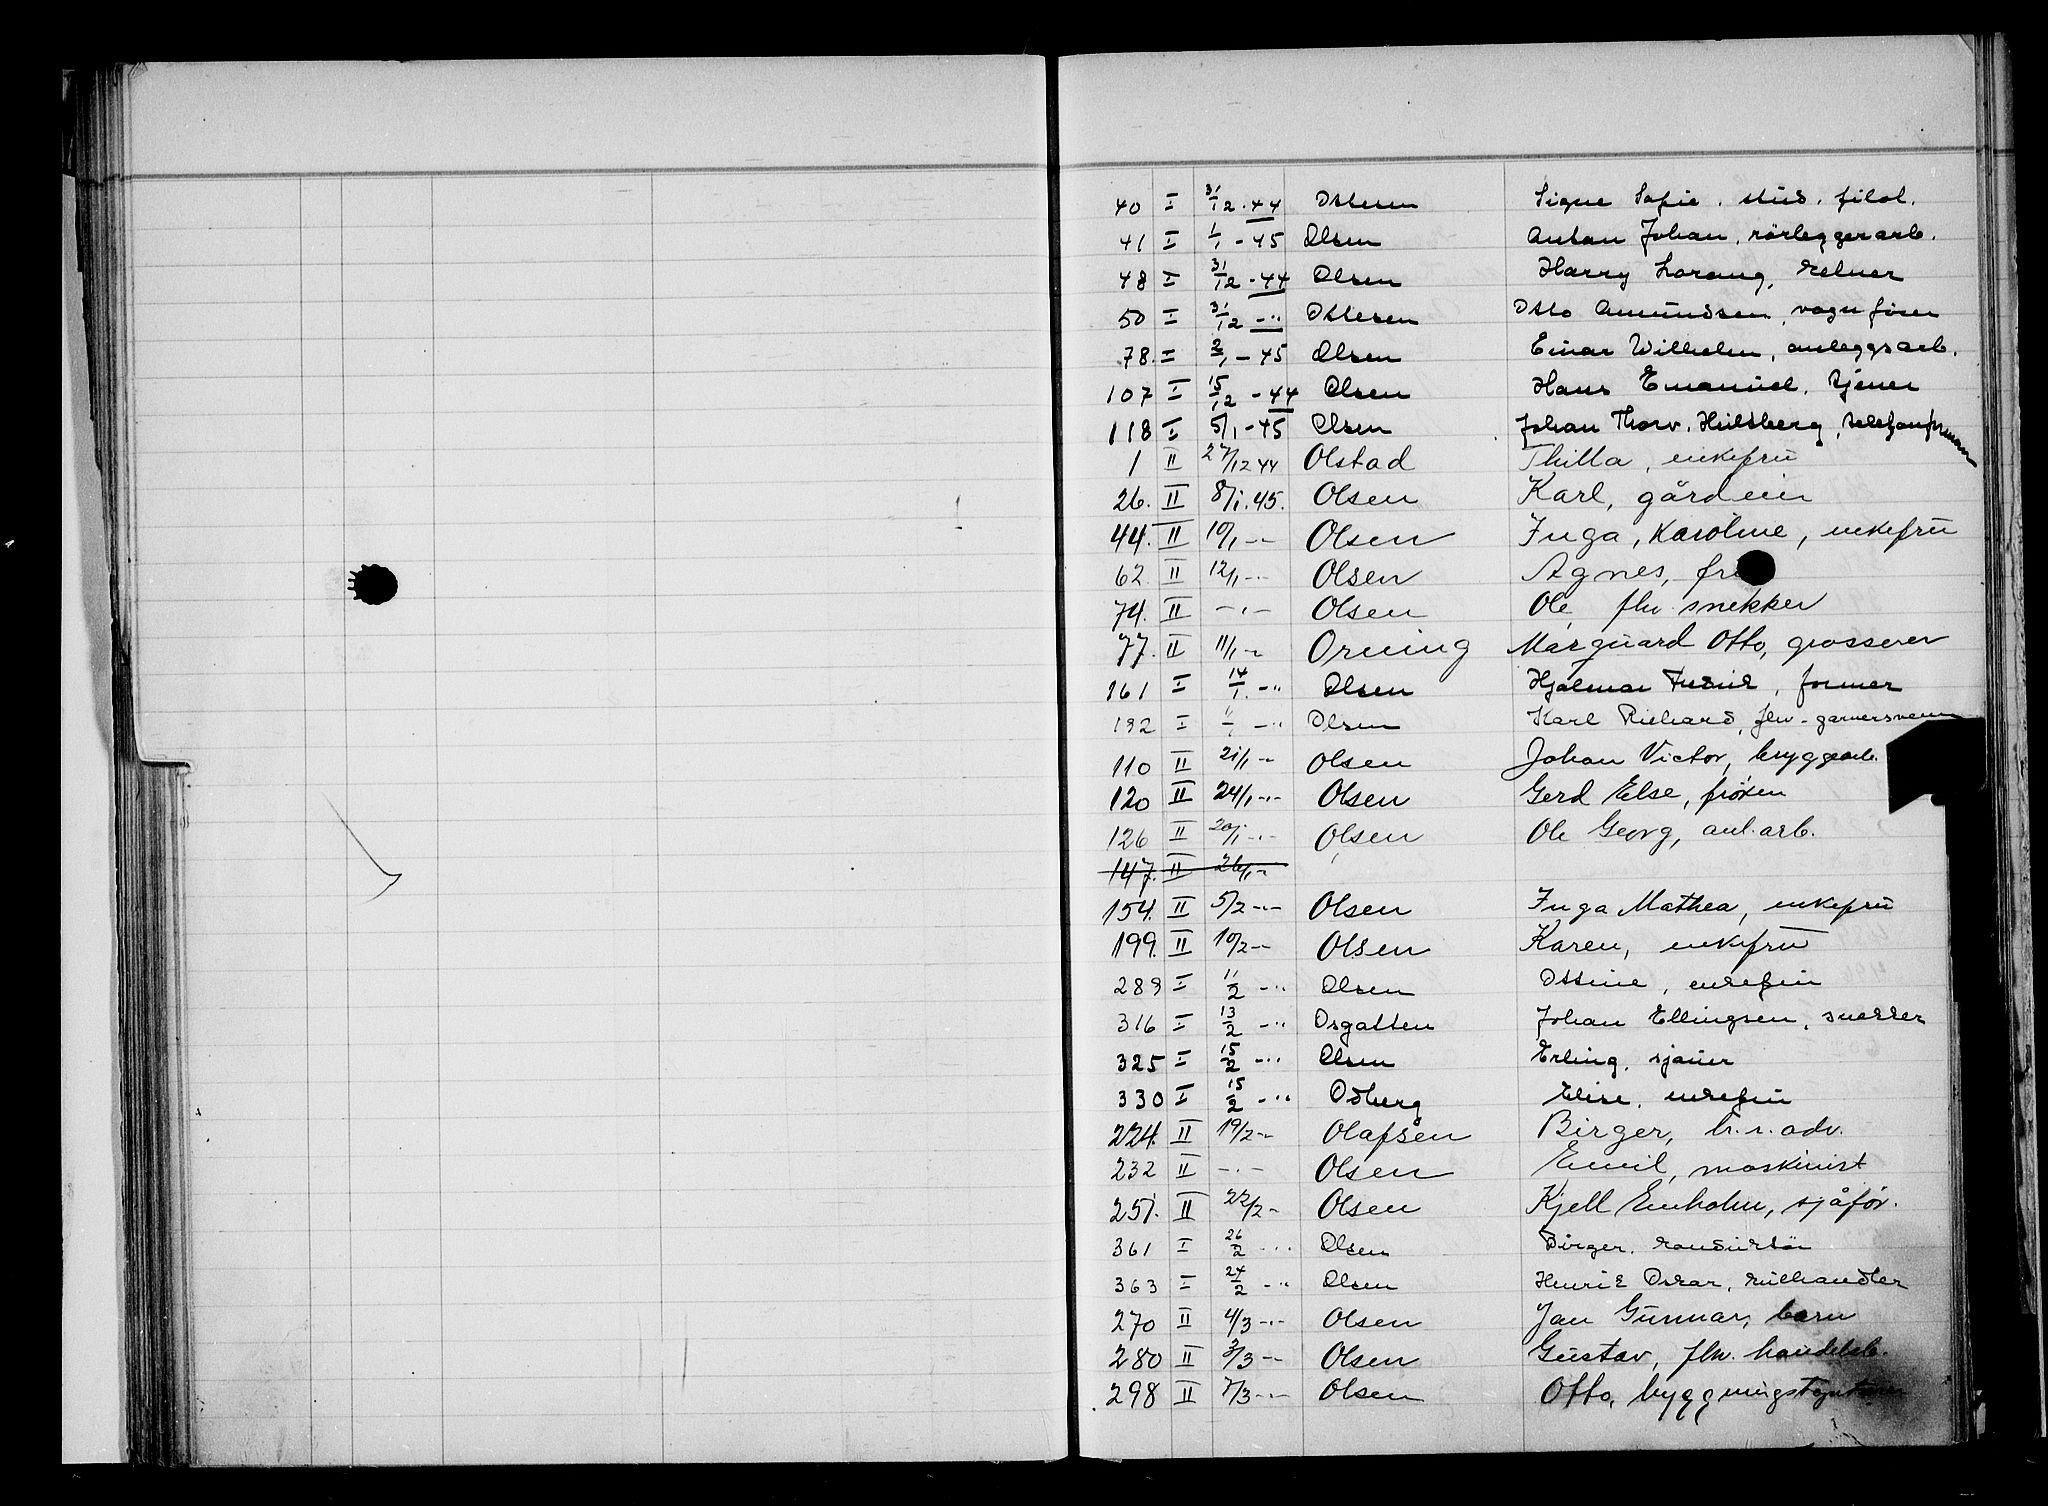 40 I 31/12-44 Ottesen Signe Sofie, stud. filol.
41 I 1/1-45 Olsen Anton Johan, rørleggerarb.
48 I 31/12-44 Olsen Harry Lorang, kelner
50 I 31/12 -"- Ottesen Otto Amundsen, vognfører
78. I 2/1-45 Olsen Einar Wilhelm, anleggsarb.
107 I 15/12-44 Olsen Hans Emanuel, tjener
118 I 5/1-45 Olsen Johan Thorv. Huldberg, telefonformann
1 II 27/12 44 Olstad Thilla, enkefru
26. II 8/1.45. Olsen Karl, gårdeier
44. II 10/1 -"- Olsen Inga, Karoline, enkefru
62. II 12/1 -"- Olsen Agnes,
74. II -"- Olsen Ole, fhv. snekker
77. II 11/1 -"- Orning Marguard Otto, grosserer
161 I 14/1. -"- Olsen Hjalmar Fredrik, former
192 I 11/1 -"- Olsen Karl Richard, fhv. garversvenn
110 II 21/1 -"- Olsen Johan Victor, bryggearb.
120 II 24/1 -"- Olsen Gerd Else, frøken
126 II 20/1 -"- Olsen Ole Georg, anl. arb.
147. II 26/1 -"-
154. II 5/2 -"- Olsen Inga Mathea, enkefru
199. II 10/2 -"- Olsen Karen, enkefru
289 I 11/2 -"- Olsen Ottine, enkefru
316 I 13/2 -"- Osgatten Johan Ellingsen, snekker
325 I 15/2 -"- Olsen Erling, sjauer
330 I 15/2 -"- Odberg Elise, enkefru
224. II 19/2 -"- Olafsen Birger, h.r.adv.
232 II -"- Olsen Emil, maskinist
251. II 22/2 - Olsen Kjell Einholm, sjåfør.
361 I 26/2 -"- Olsen Birger, konduktør
363 I 24/2 -"- Olsen Henrik Oskar, kullhandler
270 II 4/3 -"- Olsen Jan Gunnar, barn
280 II 3/3 -"- Olsen Gustav, fhv. handelsb.
298 II 7/3 -"- Olsen Otto,